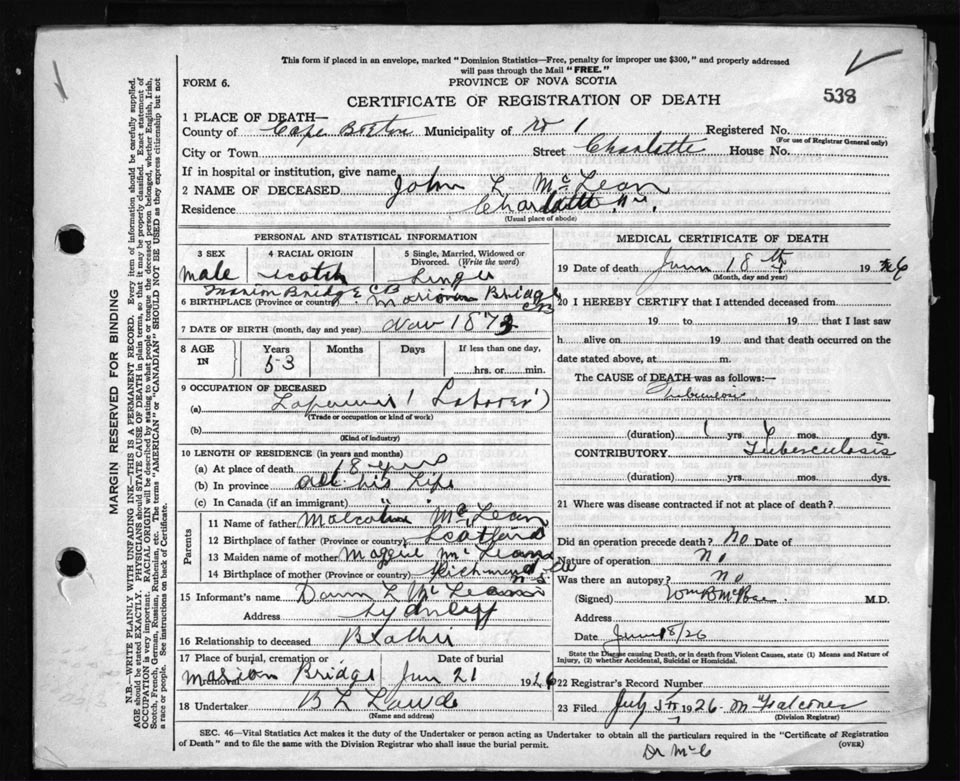 This form if placed in an envelope, marked "Dominion Statistics—Free, penalty for improper use $300," and properly addressed
will pass through the Mail "FREE."
FORM 6.
PROVINCE OF NOVA SCOTIA
CERTIFICATE OF REGISTRATION OF DEATH
538
1 PLACE OF DEATH—
County of Cape Breton Municipality of W 1 Registered No.
(For use of Registrar General only)
City or Town Street Charlotte House No.
If in hospital or institution, give name
2 NAME OF DECEASED John L McLean
Residence Charlotte St.
(Usual place of abode)
PERSONAL AND STATISTICAL INFORMATION
3 SEX 4 RACIAL ORIGIN 5 Single, Married, Widowed or Divorced. (Write the word)
male Scotch Single
Marion Bridge CB
6 BIRTHPLACE (Province or country) Marion Bridge CB
7 DATE OF BIRTH (month, day and year) Nov 1873
8 AGE IN Years Months Days If less than one day,
53 hrs. or min.
9 OCCUPATION OF DECEASED
(a) (Laborer)
(Trade or occupation or kind of work)
(b)
(Kind of industry)
10 LENGTH OF RESIDENCE (in years and months)
(a) At place of death 18 years
(b) In province all his life
(c) In Canada (if an immigrant) " " "
Parents
11 Name of father Malcolm McLean
12 Birthplace of father (Province or country) Scotland
13 Maiden name of mother Maggie McLean
14 Birthplace of mother (Province or country) Richmond Co N.S.
15 Informant's name Dan L McLean
Address Sydney
16 Relationship to deceased Brother
17 Place of burial, cremation or removal Date of burial
Marion Bridge Jun 21 1926
18 Undertaker B L
(Name and address)
MEDICAL CERTIFICATE OF DEATH
19 Date of death June 18th 1926
(Month, day and year)
20 I HEREBY CERTIFY that I attended deceased from
19 to 19 that I last saw
h alive on 19 and that death occurred on the
date stated above, at m.
The CAUSE of DEATH was as follows:—
Tuberculosis
(duration) 1 yrs. mos. dys.
CONTRIBUTORY Tuberculosis
(duration) yrs. mos. dys.
21 Where was disease contracted if not at place of death?
Did an operation precede death? No Date of
Nature of operation No
Was there an autopsy? No
(Signed) Wm B M.D.
Address
Date June 18/26
State the Disease causing Death, or in death from Violent Causes, state (1) Means and Nature of
Injury, (2) whether Accidental, Suicidal or Homicidal.
22 Registrar's Record Number
23 Filed July 1926
(Division Registrar)
SEC. 46—Vital Statistics Act makes it the duty of the Undertaker or person acting as Undertaker to obtain all the particulars required in the "Certificate of Registration
of Death" and to file the same with the Division Registrar who shall issue the burial permit.
(OVER)
Dr McC
MARGIN RESERVED FOR BINDING
N.B.—WRITE PLAINLY WITH UNFADING INK—THIS IS A PERMANENT RECORD. Every item of information should be carefully supplied.
AGE should be stated EXACTLY. PHYSICIANS should STATE CAUSE OF DEATH in plain terms, so that it may be properly classified. Exact statement of
OCCUPATION is very important. RACIAL ORIGIN will be described by stating to what people or tongue the deceased person belonged, whether English, Irish,
Scotch, French, German, Russian, Ruthenian, etc. The terms "AMERICAN" or "CANADIAN" SHOULD NOT BE USED as they express citizenship but not
a race or people. See instructions on back of Certificate.